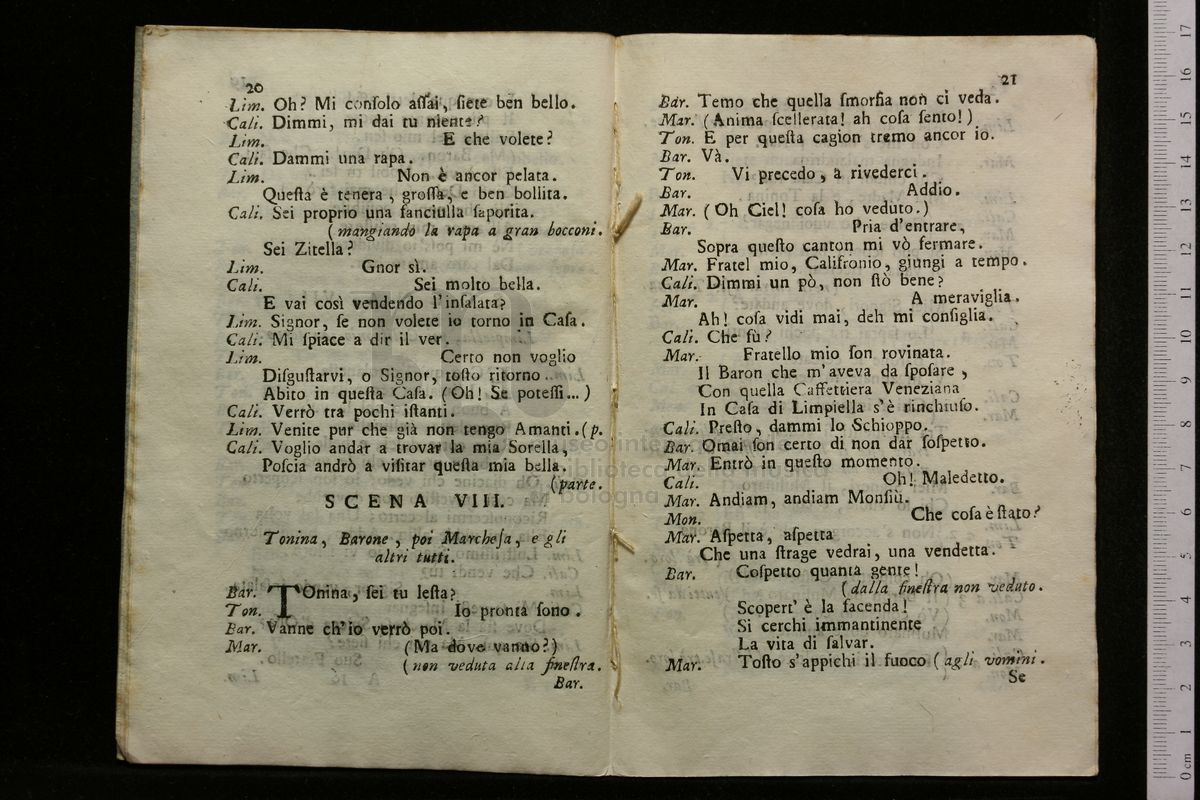 20
Lim. Oh? Mi conſolo aſſai, ſiete ben bello.
Cali. Dimmi, mi dai tu niente?
Lim. E che volete?
Cali. Dammi una rapa.
Lim. Non è ancor pelata.
Queſta è tenera, groſſa, e ben bollita.
Cali. Sei proprio una fanciulla ſaporita.
(mangiando la rapa a gran bocconi.
Sei Zitella?
Lim. Gnor sì.
Cali. Sei molto bella.
E vai così vendendo l'inſalata?
Lim. Signor, ſe non volete io torno in Caſa.
Cali. Mi ſpiace a dir il ver.
Lim. Certo non voglio
Diſguſtarvi, o Signor, toſto ritorno..
Abito in queſta Caſa. (Oh! Se poteſſi...)
Cali. Verrò tra pochi iſtanti.
Lim. Venite pur che già non tengo Amanti. (p.
Cali. Voglio andar a trovar la mia Sorella,
Poſcia andrò a viſitar queſta mia bella.
(parte.
SCENA VIII.
Tonina, Barone, poi Marcheſa, e gli
altri tutti.
Bar. TOnina, ſei tu leſta?
Ton. Io pronta ſono.
Bar. Vanne ch'io verrò poi.
Mar. (Ma dove vanno?)
(non veduta alla fineſtra.
Bar.
21
Bar. Temo che quella ſmorfia non ci veda.
Mar. (Anima ſcellerata! ah coſa ſento!)
Ton. E per queſta cagion tremo ancor io.
Bar. Và.
Ton. Vi precedo, a rivederci.
Bar. Addio.
Mar. (Oh Ciel! coſa ho veduto.)
Bar. Pria d'entrare,
Sopra queſto canton mi vò fermare.
Mar. Fratel mio, Califronio, giungi a tempo.
Cali. Dimmi un pò, non ſtò bene?
Mar. A meraviglia.
Ah! coſa vidi mai, deh mi conſiglia.
Cali. Che fù?
Mar. Fratello mio ſon rovinata.
Il Baron che m'aveva da ſpoſare,
Con quella Caffettiera Veneziana
In Caſa di Limpiella s'è rinchiuſo.
Cali. Preſto, dammi lo Schioppo.
Bar. Omai ſon certo di non dar ſoſpetto.
Mar. Entrò in queſto momento.
Cali. Oh! Maledetto.
Mar. Andiam, andiam Monſiù.
Mon. Che coſa è ſtato?
Mar. Aſpetta, aſpetta
Che una ſtrage vedrai, una vendetta.
Bar. Coſpetto quanta gente!
(dalla fineſtra non veduto.
Scopert' è la facenda!
Si cerchi immantinente
La vita di ſalvar.
Mar. Toſto s'appichi il fuoco (agli uomini.
Se
0 cm 1 2 3 4 5 6 7 8 9 10 11 12 13 14 15 16 17